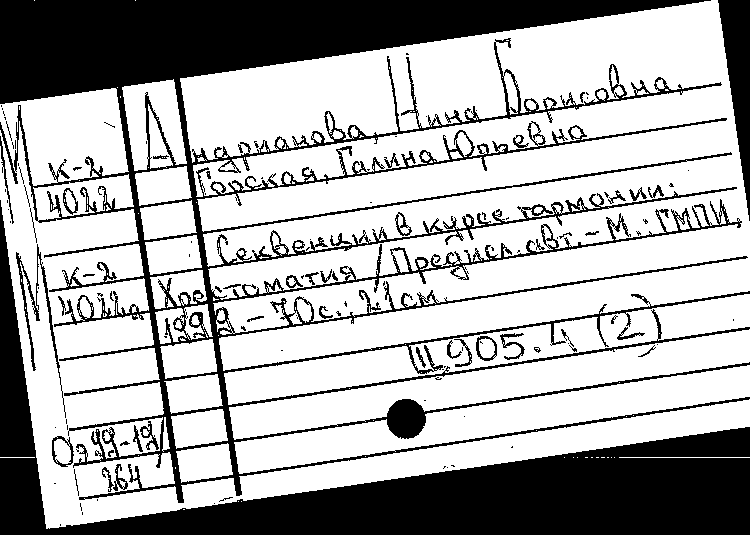 М к-2 Андрианова, Нина Борисовна,
4022 Горская, Галина Юрьевна
Секвенции в курсе гармонии:
М к-2 Хрестоматия / Предисл. авт. - М.: ГМПИ,
4022а 1999. - 70с.; 21см.
Щ905.4 (2)
Оэ 99-19/
264